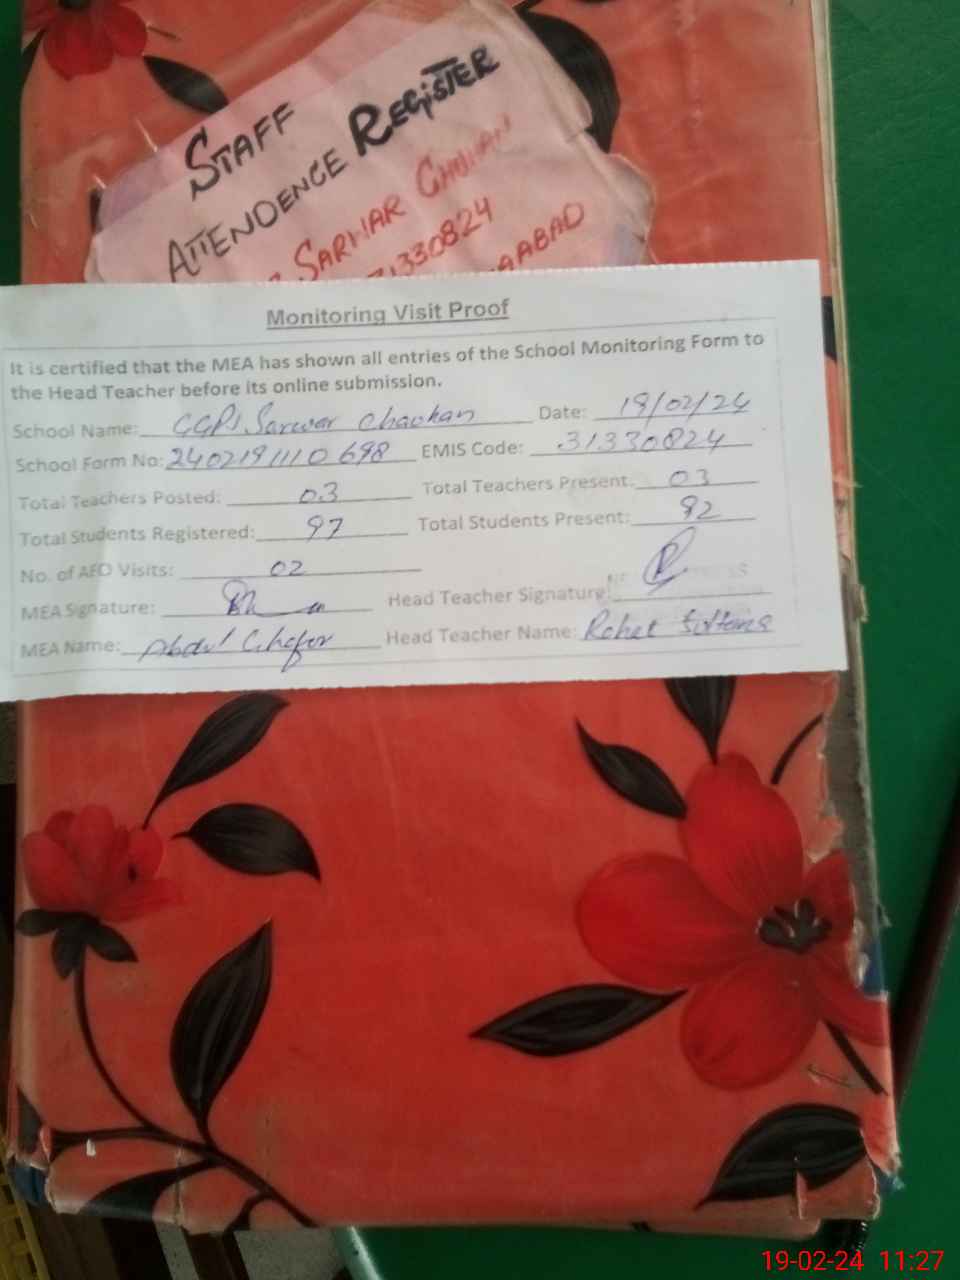 STAFF
ATTENDENCE REGISTER
SARWAR CHOHAN
31330824
ABAD
Monitoring Visit Proof
It is certified that the MEA has shown all entries of the School Monitoring Form to
the Head Teacher before its online submission.
School Name: GGPS Sarwar Chaohan Date: 19/02/24
School Form No: 2402191110698 EMIS Code: 31330824
Total Teachers Posted: 03 Total Teachers Present: 03
Total Students Registered: 97 Total Students Present: 92
No. of AEO Visits: 02
MEA Signature: Head Teacher Signature:
MEA Name: Abdul Ghafor Head Teacher Name:
19-02-24 11:27